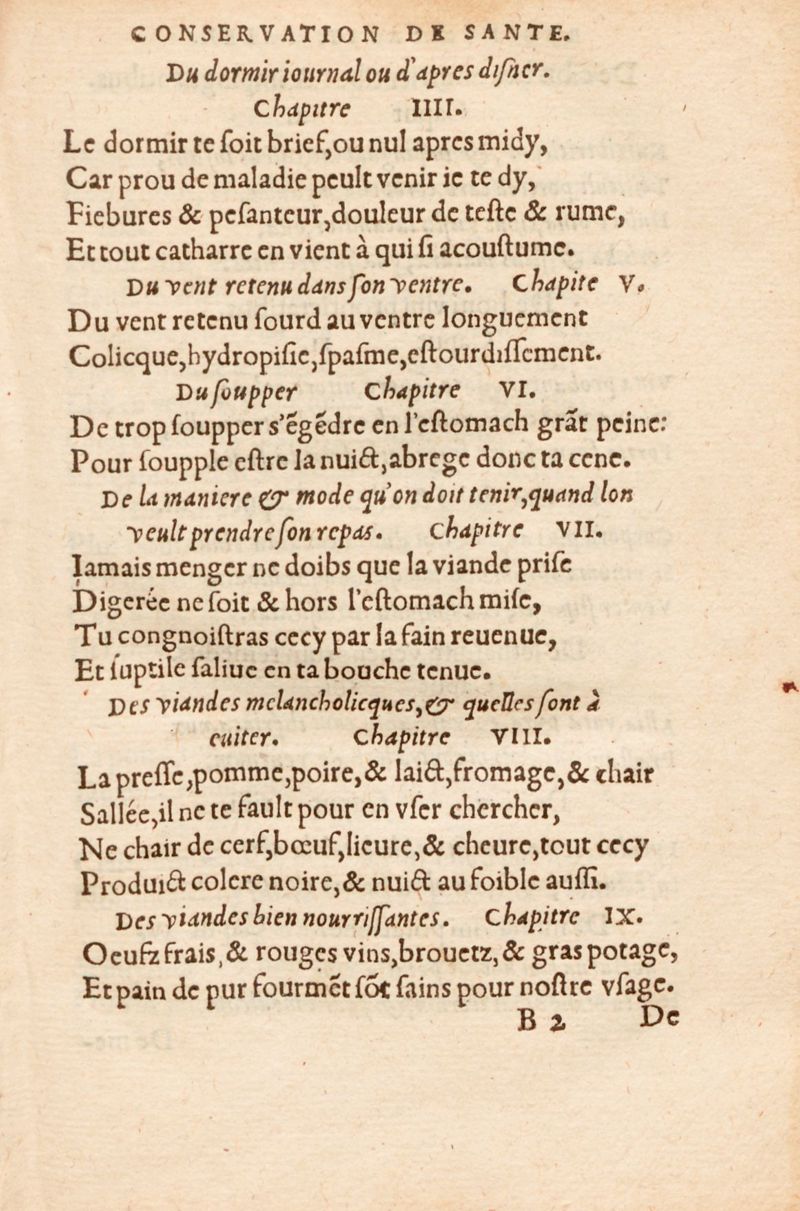 CONSERVATION DE SANTE.
Du dormir iournal ou d'apres disner.
Chapitre IIII.
Le dormir te ſoit brief, ou nul apres midy,
Car prou de maladie peult venir ie te dy,
Fiebures & peſanteur, douleur de teſte & rume,
Et tout catharre en vient à qui ſi acouſtume.
Du vent retenu dans ſon ventre. Chapite V.
Du vent retenu ſourd au ventre longuement
Colicque, hydropiſie, ſpaſme, eſtourdiſſement.
Du ſoupper Chapitre VI.
De trop ſoupper s'ẽgẽdre en l'eſtomach grãt peine:
Pour ſoupple eſtre la nuict, abrege donc ta cene.
De la maniere & mode qu'on doit tenir, quand lon
veult prendre ſon repas. Chapitre VII.
Iamais menger ne doibs que la viande priſe
Digerée ne ſoit & hors l'eſtomach miſe,
Tu congnoiſtras cecy par la fain reuenue,
Et ſuptile ſaliue en ta bouche tenue.
Des viandes melancholicques, & quelles ſont à
euiter. Chapitre VIII.
La preſſe, pomme, poire, & laict, fromage, & chair
Sallée, il ne te fault pour en vſer chercher,
Ne chair de cerf, bœuf, lieure, & cheure, tout cecy
Produict colere noire, & nuict au foible auſſi.
Des viandes bien nourriſſantes. Chapitre IX.
Oeufz frais, & rouges vins, brouetz, & gras potage,
Et pain de pur fourmẽt ſõt ſains pour noſtre vſage.
B 2 De